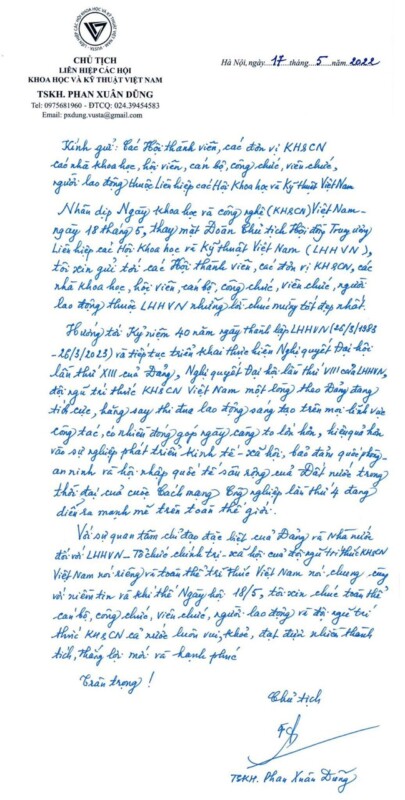 CHỦ TỊCH
LIÊN HIỆP CÁC HỘI
KHOA HỌC VÀ KỸ THUẬT VIỆT NAM
TSKH. PHAN XUÂN DŨNG
Tel: 0975681960 - ĐTCQ: 024.39454583
Email: pxdung.vusta@gmail.com
Hà Nội, ngày 17 tháng 5 năm 2022
Kính gửi: Các Hội thành viên, các đơn vị KH&CN
các nhà khoa học, hội viên, cán bộ, công chức, viên chức,
người lao động thuộc Liên hiệp các Hội Khoa học và Kỹ thuật Việt Nam
Nhân dịp Ngày khoa học và công nghệ (KH&CN) Việt Nam -
ngày 18 tháng 5, thay mặt Đoàn Chủ tịch Hội đồng Trung ương
Liên hiệp các Hội Khoa học và Kỹ thuật Việt Nam (LHHVN),
tôi xin gửi tới các Hội thành viên, các đơn vị KH&CN, các
nhà khoa học, hội viên, cán bộ, công chức, viên chức, người
lao động thuộc LHHVN những lời chúc mừng tốt đẹp nhất.
Hướng tới Kỷ niệm 40 năm ngày thành lập LHHVN (26/3/1983
- 26/3/2023) và tiếp tục triển khai thực hiện Nghị quyết Đại hội
lần thứ XIII của Đảng, Nghị quyết Đại hội lần thứ VIII của LHHVN,
đội ngũ trí thức KH&CN Việt Nam một lòng theo Đảng đang
tích cực, hăng say thi đua lao động sáng tạo trên mọi lĩnh vực
công tác, có nhiều đóng góp ngày càng to lớn hơn, hiệu quả hơn
vào sự nghiệp phát triển kinh tế - xã hội, bảo đảm quốc phòng
an ninh và hội nhập quốc tế sâu rộng của Đất nước trong
thời đại của cuộc Cách mạng Công nghiệp lần thứ 4 đang
diễn ra mạnh mẽ trên toàn thế giới.
Với sự quan tâm chỉ đạo đặc biệt của Đảng và Nhà nước
đối với LHHVN - Tổ chức chính trị - xã hội của đội ngũ trí thức KH&CN
Việt Nam nói riêng và toàn thể trí thức Việt Nam nói chung cùng
với niềm tin và khí thế Ngày hội 18/5, tôi xin chúc toàn thể
cán bộ, công chức, viên chức, người lao động và đội ngũ trí
thức KH&CN cả nước luôn vui, khoẻ, đạt được nhiều thành
tích, thắng lợi mới và hạnh phúc
Trân trọng!
Chủ tịch
TSKH. Phan Xuân Dũng